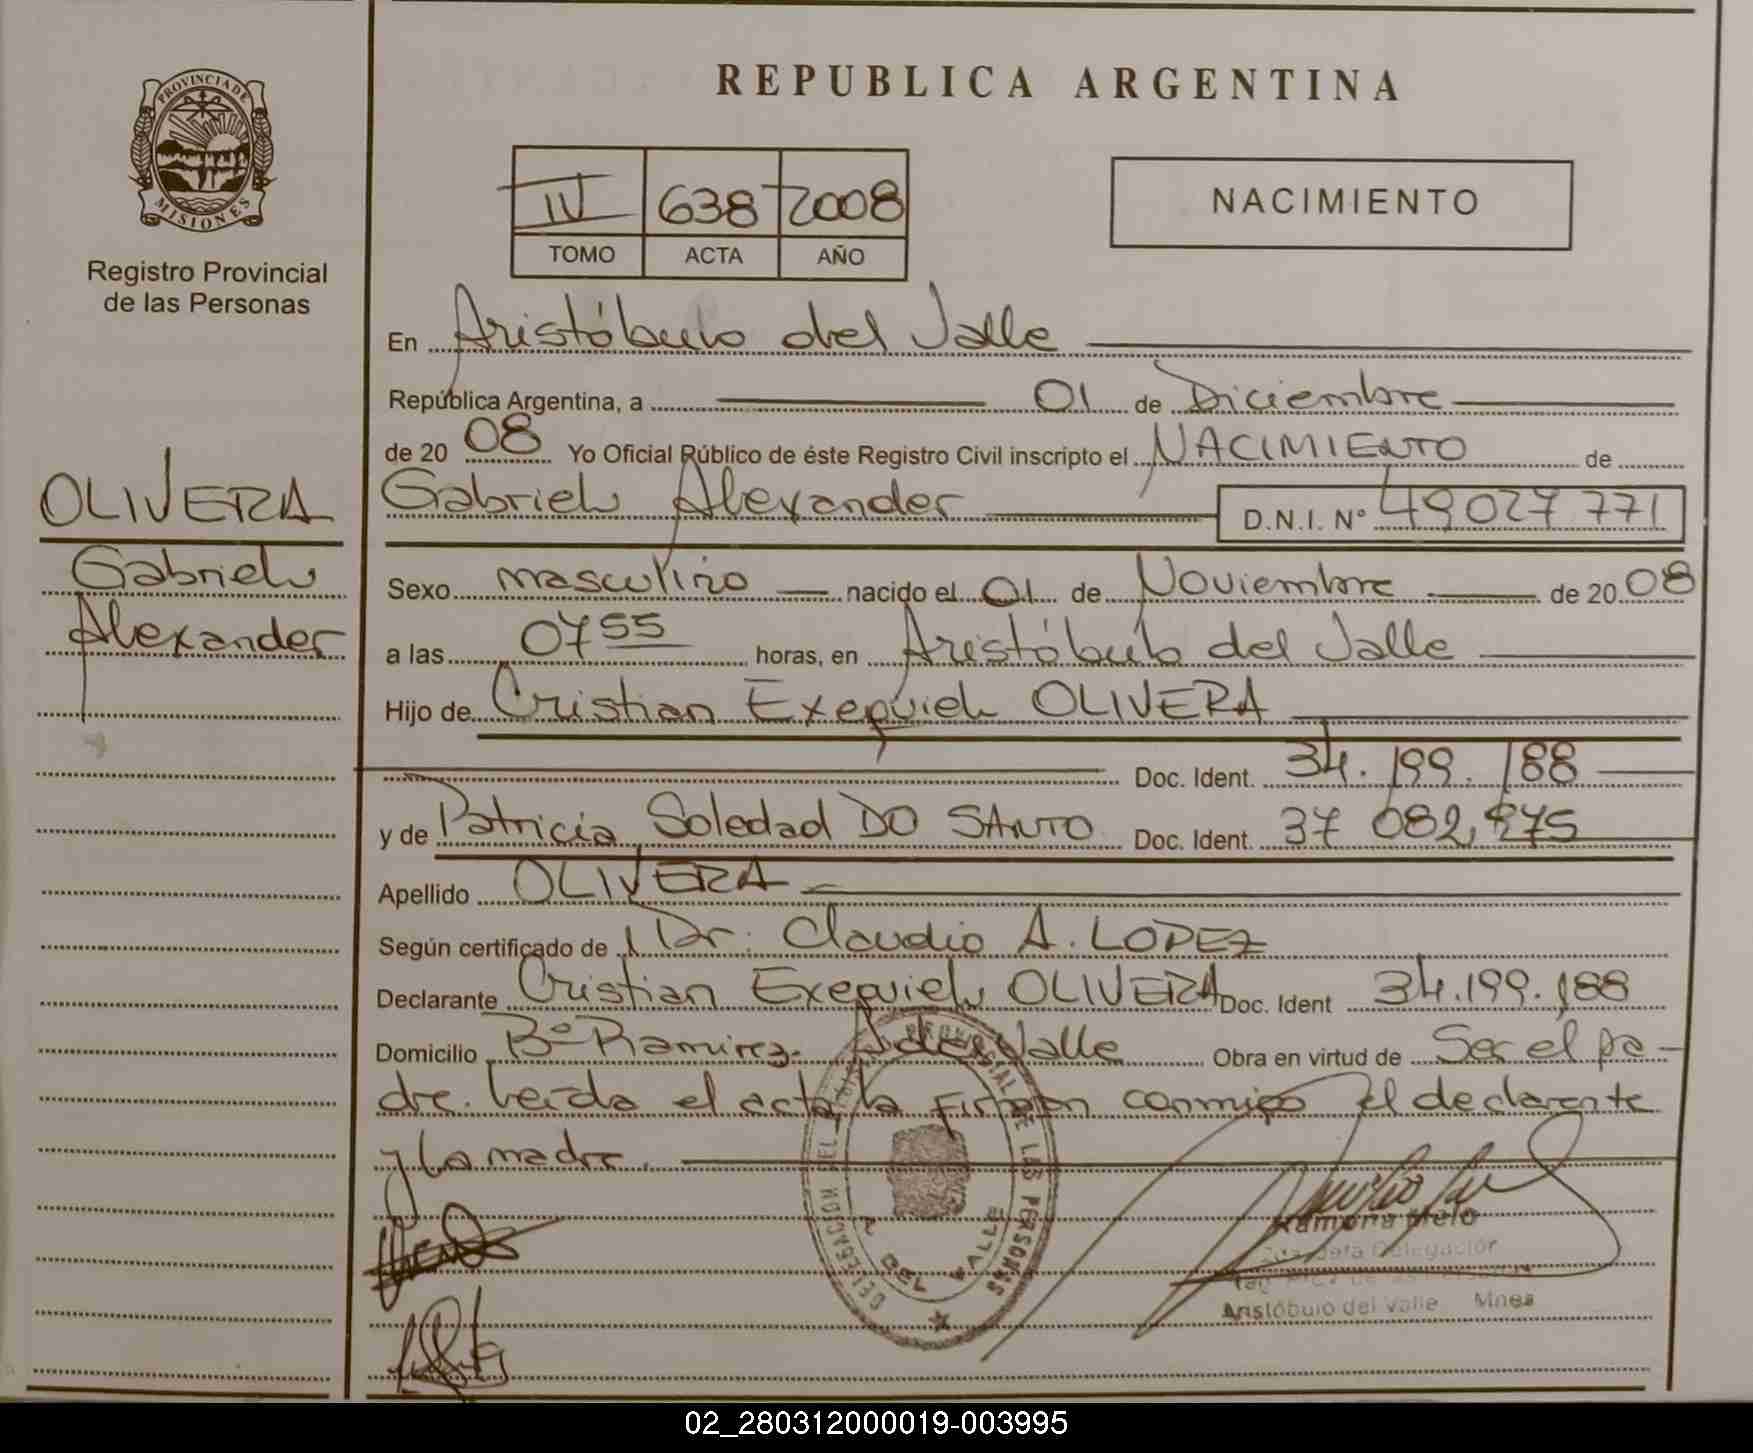 PROVINCIA DE
MISIONES
Registro Provincial
de las Personas
OLIVERA
Gabriel
Alexander
REPUBLICA ARGENTINA
IV 638 2008
TOMO ACTA AÑO
NACIMIENTO
En Aristóbulo del Valle
República Argentina, a 01 de Diciembre
de 20 08 Yo Oficial Público de éste Registro Civil inscripto el NACIMIENTO de
Gabriel Alexander D.N.I. Nº 49027771
Sexo masculino nacido el 01 de Noviembre de 20 08
a las 0755 horas, en Aristóbulo del Valle
Hijo de Cristian Exequiel OLIVERA
Doc. Ident. 34.199.188
y de Patricia Soledad DO SANTO Doc. Ident. 37 082,975
Apellido OLIVERA
Según certificado de Dr. Claudio A. LOPEZ
Declarante Cristian Exequiel OLIVERA Doc. Ident 34.199.188
Domicilio Bº Ramirez. A del Valle Obra en virtud de Ser el pa-
dre. Leída el acta la firman conmigo el declarante
y la madre.
DELEGACION DEL REGISTRO PROVINCIAL DE LAS PERSONAS
DEL VALLE
Ramona Melo
Delegación
Aristóbulo del Valle Mnes
02_280312000019-003995